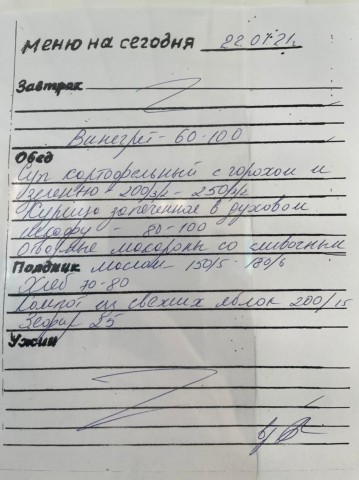 Меню на сегодня 22.07.21г.
Завтрак
Винегрет - 60-100
Обед
Суп картофельный с горохом и
зеленью - 200/5/1 - 250/5/1
Курица запеченная в духовом
шкафу - 80-100
Отварные макароны со сливочным
Полдник маслом - 150/5 - 180/6
Хлеб 70-80
Компот из свежих яблок 200/15
Зефир 25
Ужин